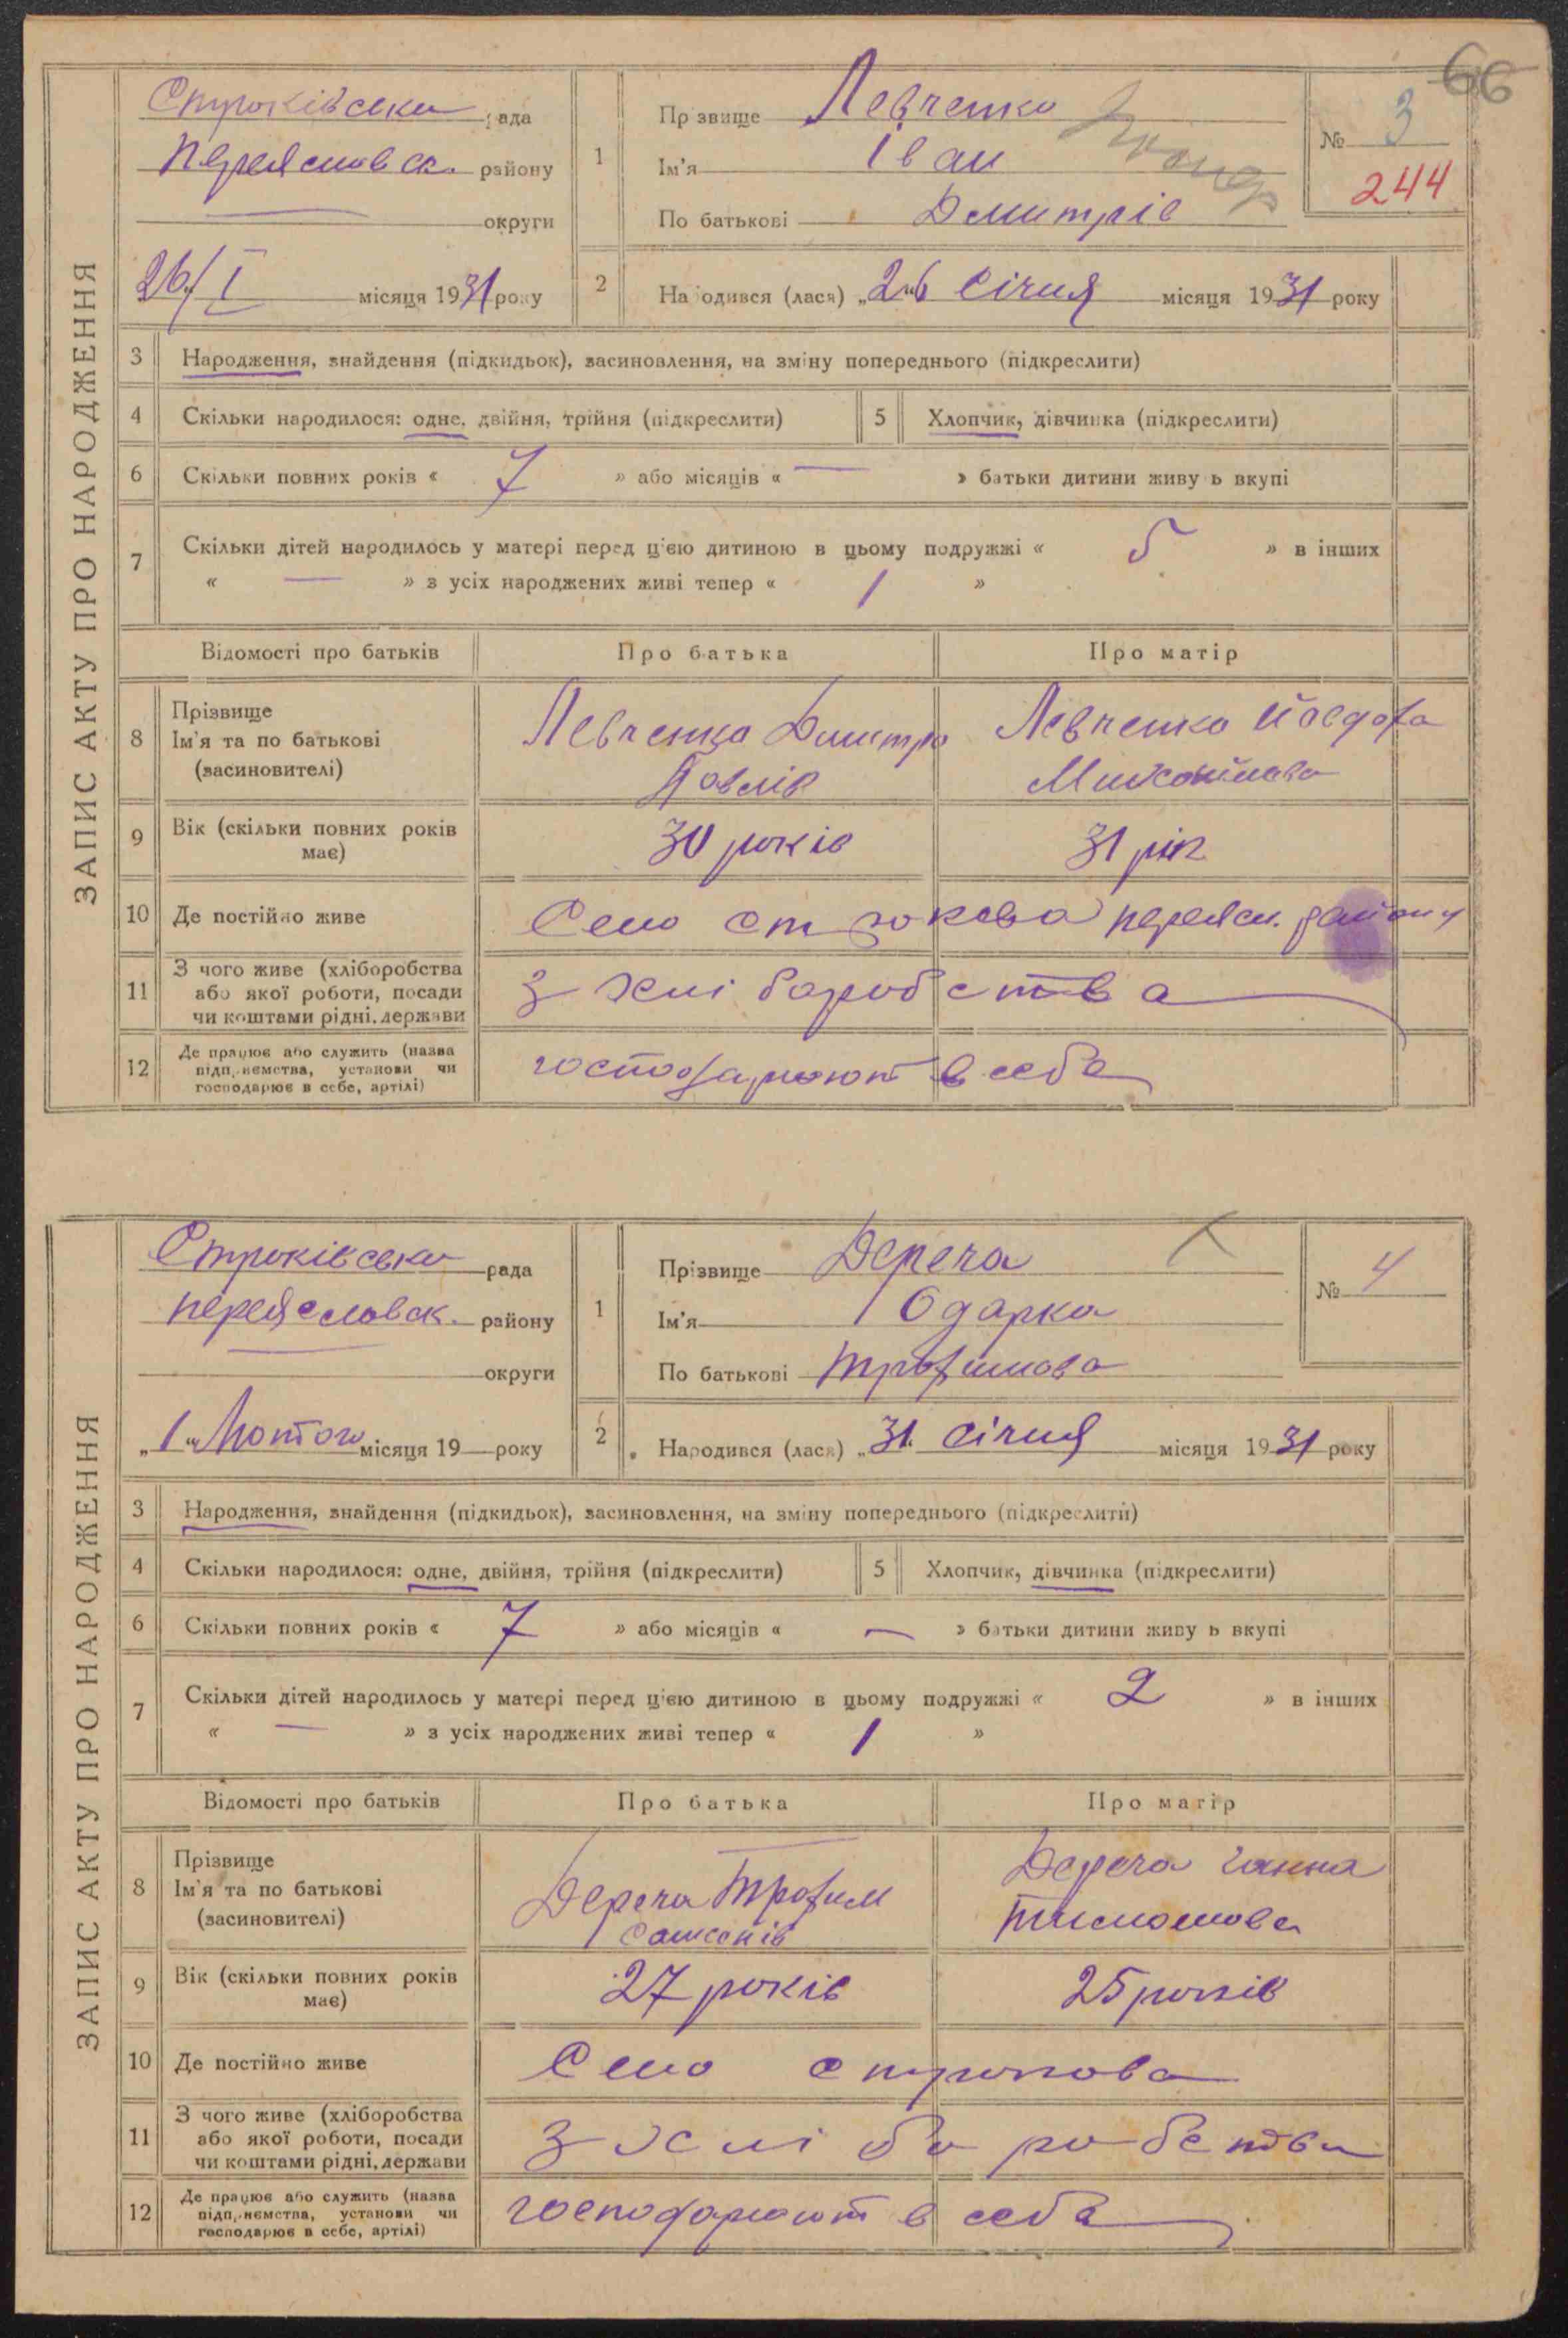 66
ЗАПИС АКТУ ПРО НАРОДЖЕННЯ
Строківська рада
Переяславськ. району
округи
26/I місяця 1931 року
1
Прізвище Левченко
Ім'я Іван
По батькові Дмитрів
№ 3
244
2
Народився (лася) „26 Січня місяця 1931 року
3 Народження, знайдення (підкидьок), засиновлення, на зміну попереднього (підкреслити)
4 Скільки народилося: одне, двійня, трійня (підкреслити) 5 Хлопчик, дівчинка (підкреслити)
6 Скільки повних років « 7 » або місяців « — » батьки дитини живуть вкупі
7 Скільки дітей народилось у матері перед цією дитиною в цьому подружжі « 5 » в інших
« — » з усіх народжених живі тепер « 1 »
Відомості про батьків Про батька Про матір
8 Прізвище
Ім'я та по батькові
(засиновителі)
Левченко Дмитро
Павлів
Левченко Йовдоха
Михайлова
9 Вік (скільки повних років
має)
30 років 31 рік
10 Де постійно живе Село Строкова переясл. району
11 З чого живе (хліборобства
або якої роботи, посади
чи коштами рідні, держави
з хліборобства
12 Де працює або служить (назва
підприємства, установи чи
господарює в себе, артілі)
господарюют в себе
ЗАПИС АКТУ ПРО НАРОДЖЕННЯ
Строківська рада
переяславськ. району
округи
„1“ Лютого місяця 19 — року
1
Прізвище Дереча
Ім'я Одарка
По батькові Трофимова
№ 4
2
Народився (лася) „31 січня місяця 1931 року
3 Народження, знайдення (підкидьок), засиновлення, на зміну попереднього (підкреслити)
4 Скільки народилося: одне, двійня, трійня (підкреслити) 5 Хлопчик, дівчинка (підкреслити)
6 Скільки повних років « 7 » або місяців « — » батьки дитини живуть вкупі
7 Скільки дітей народилось у матері перед цією дитиною в цьому подружжі « 2 » в інших
« — » з усіх народжених живі тепер « 1 »
Відомості про батьків Про батька Про матір
8 Прізвище
Ім'я та по батькові
(засиновителі)
Дереча Трофим
Самсонів
Дереча Ганна
9 Вік (скільки повних років
має)
27 років 25 років
10 Де постійно живе Село Строкова
11 З чого живе (хліборобства
або якої роботи, посади
чи коштами рідні, держави
з хліборобства
12 Де працює або служить (назва
підприємства, установи чи
господарює в себе, артілі)
господарюют в себе